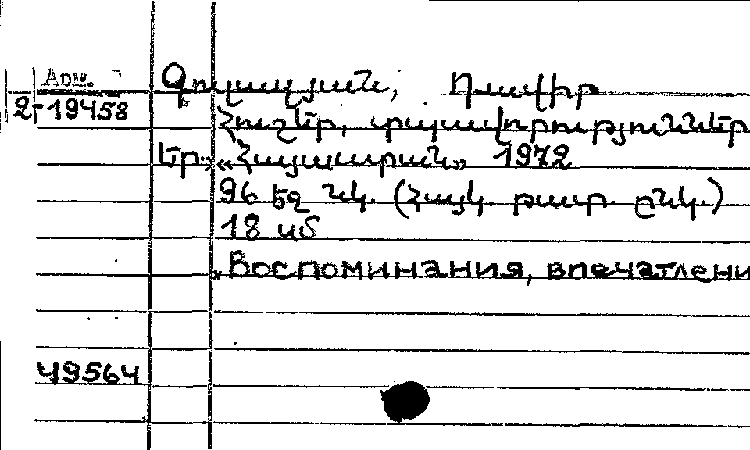 Арм.
2-19458
Գուլազյան, Դավիթ
Հուշեր, տպավորություններ
Եր. «Հայաստան» 1972
96 էջ նկ. (Հայկ. թատր. ընկ.)
18 սմ
Воспоминания, впечатлени
49564